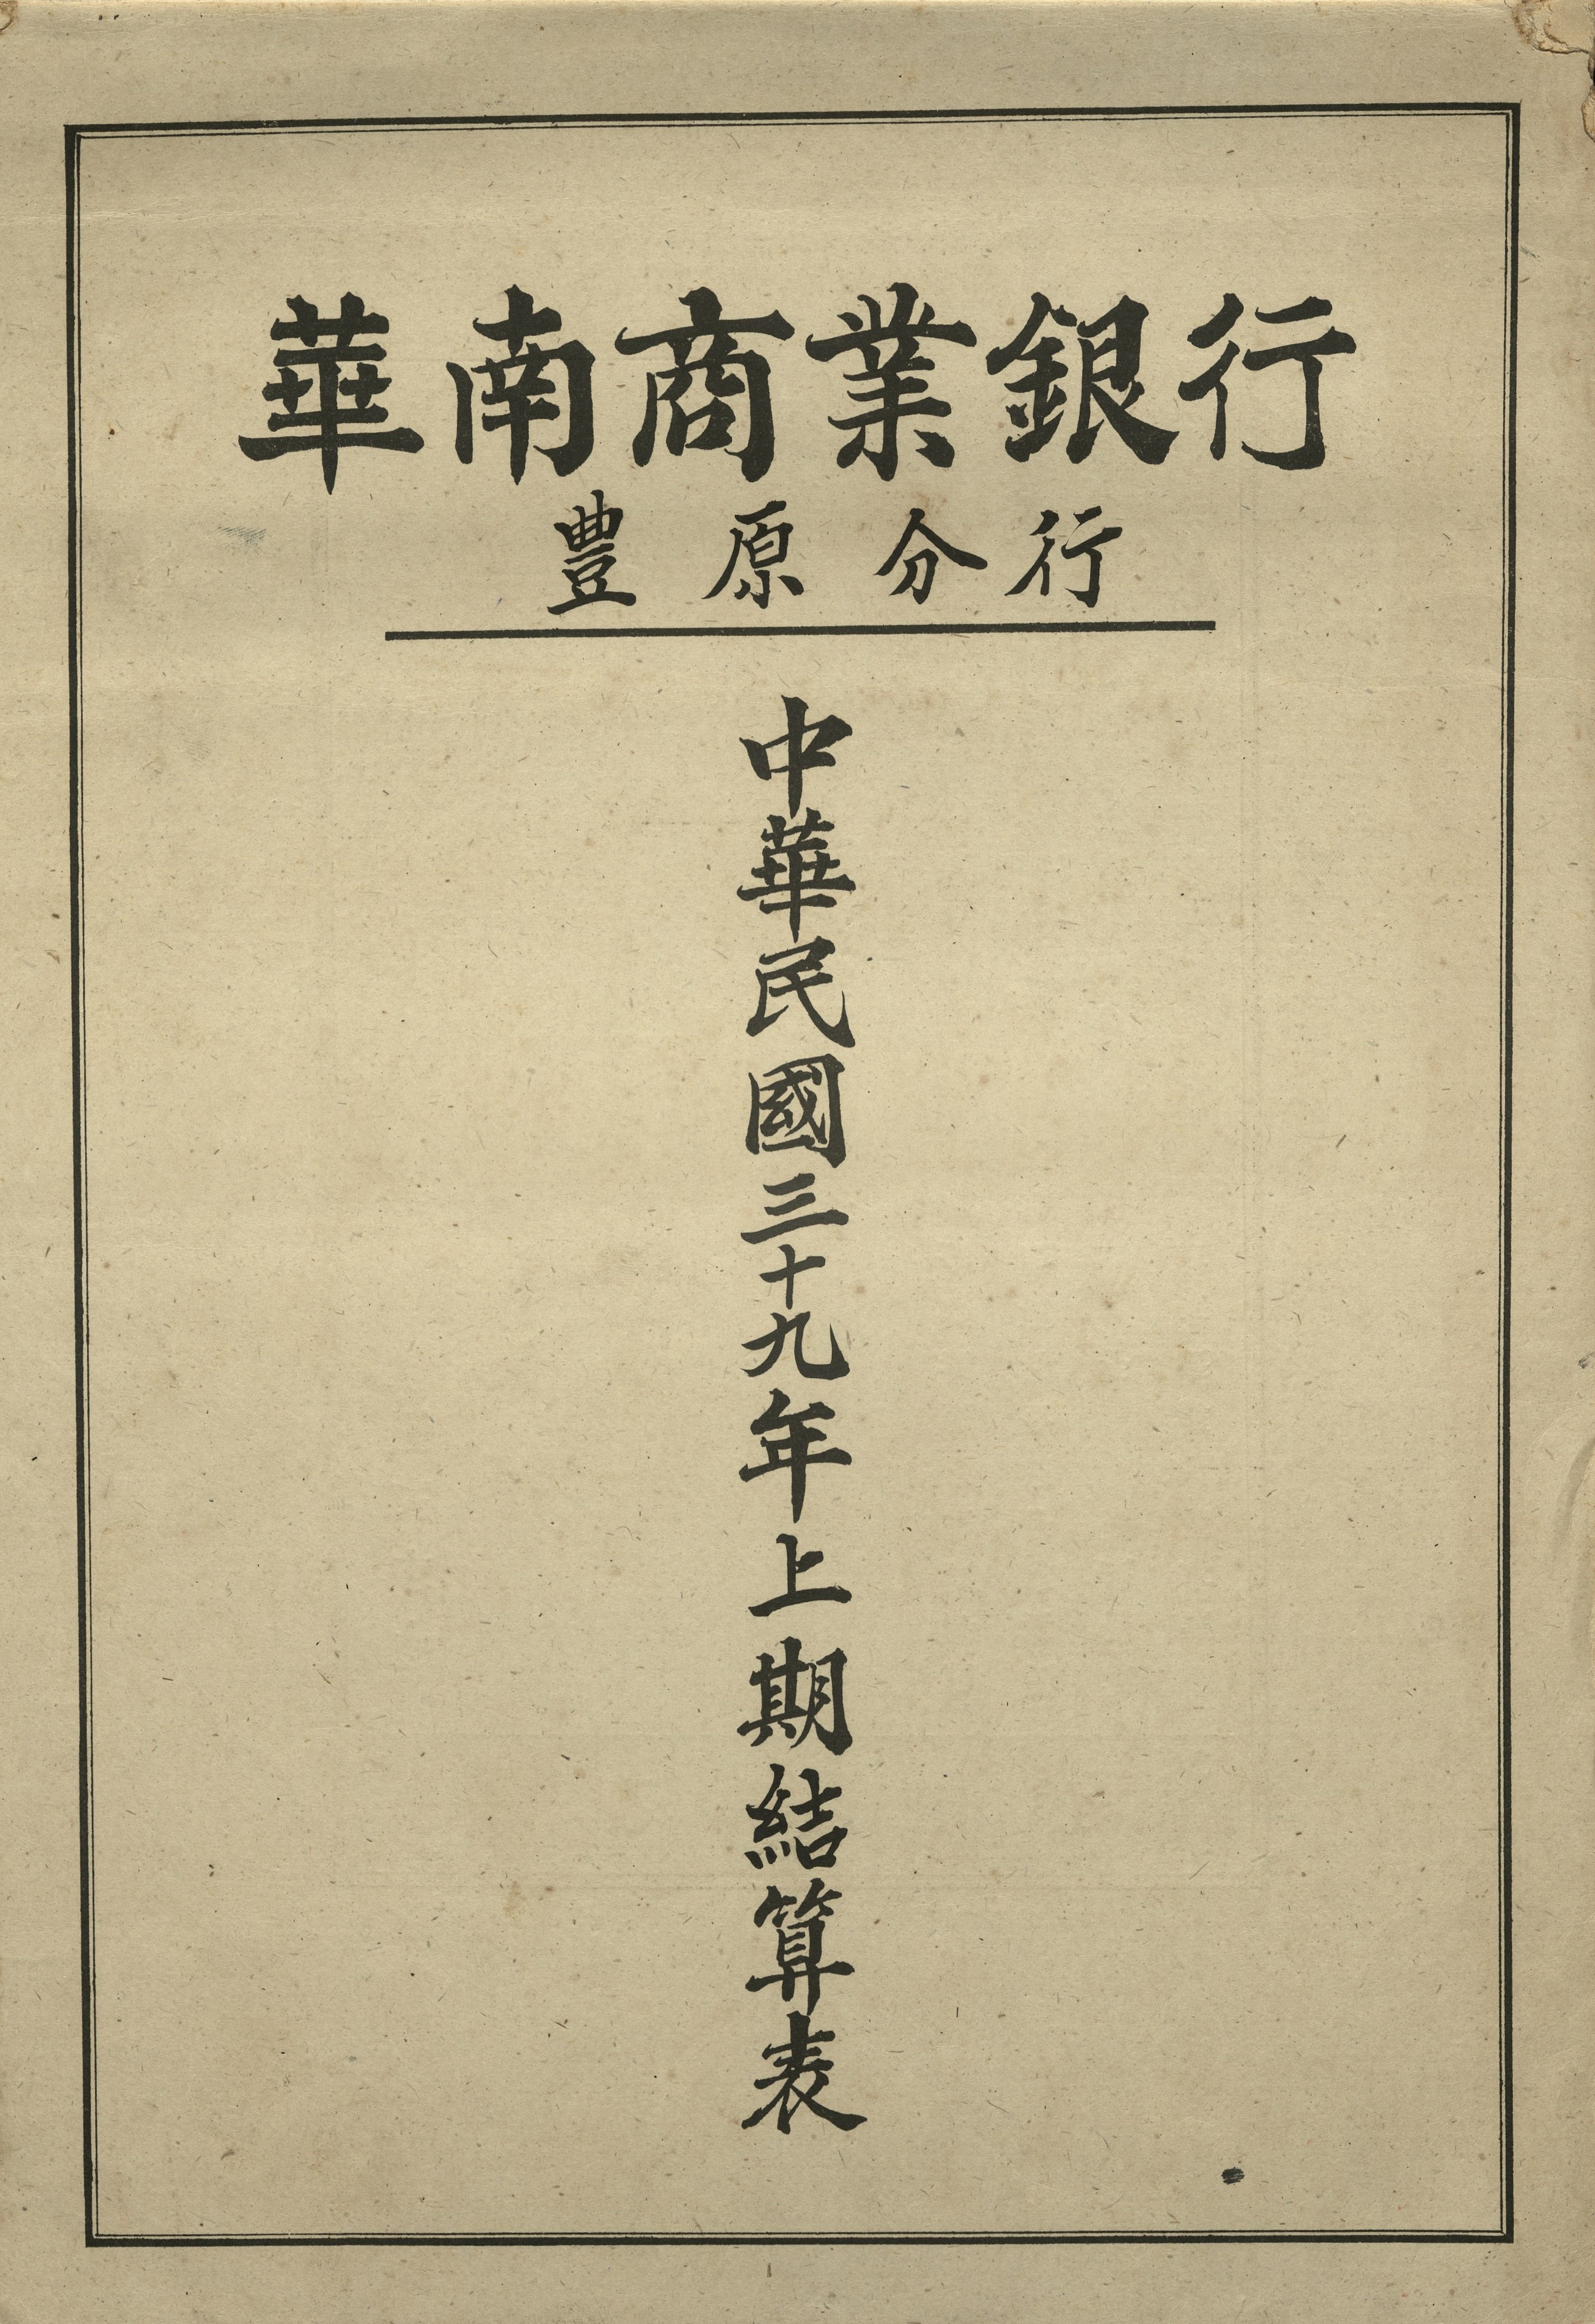 華南商業銀行
豐原分行
中華民國三十九年上期結算表